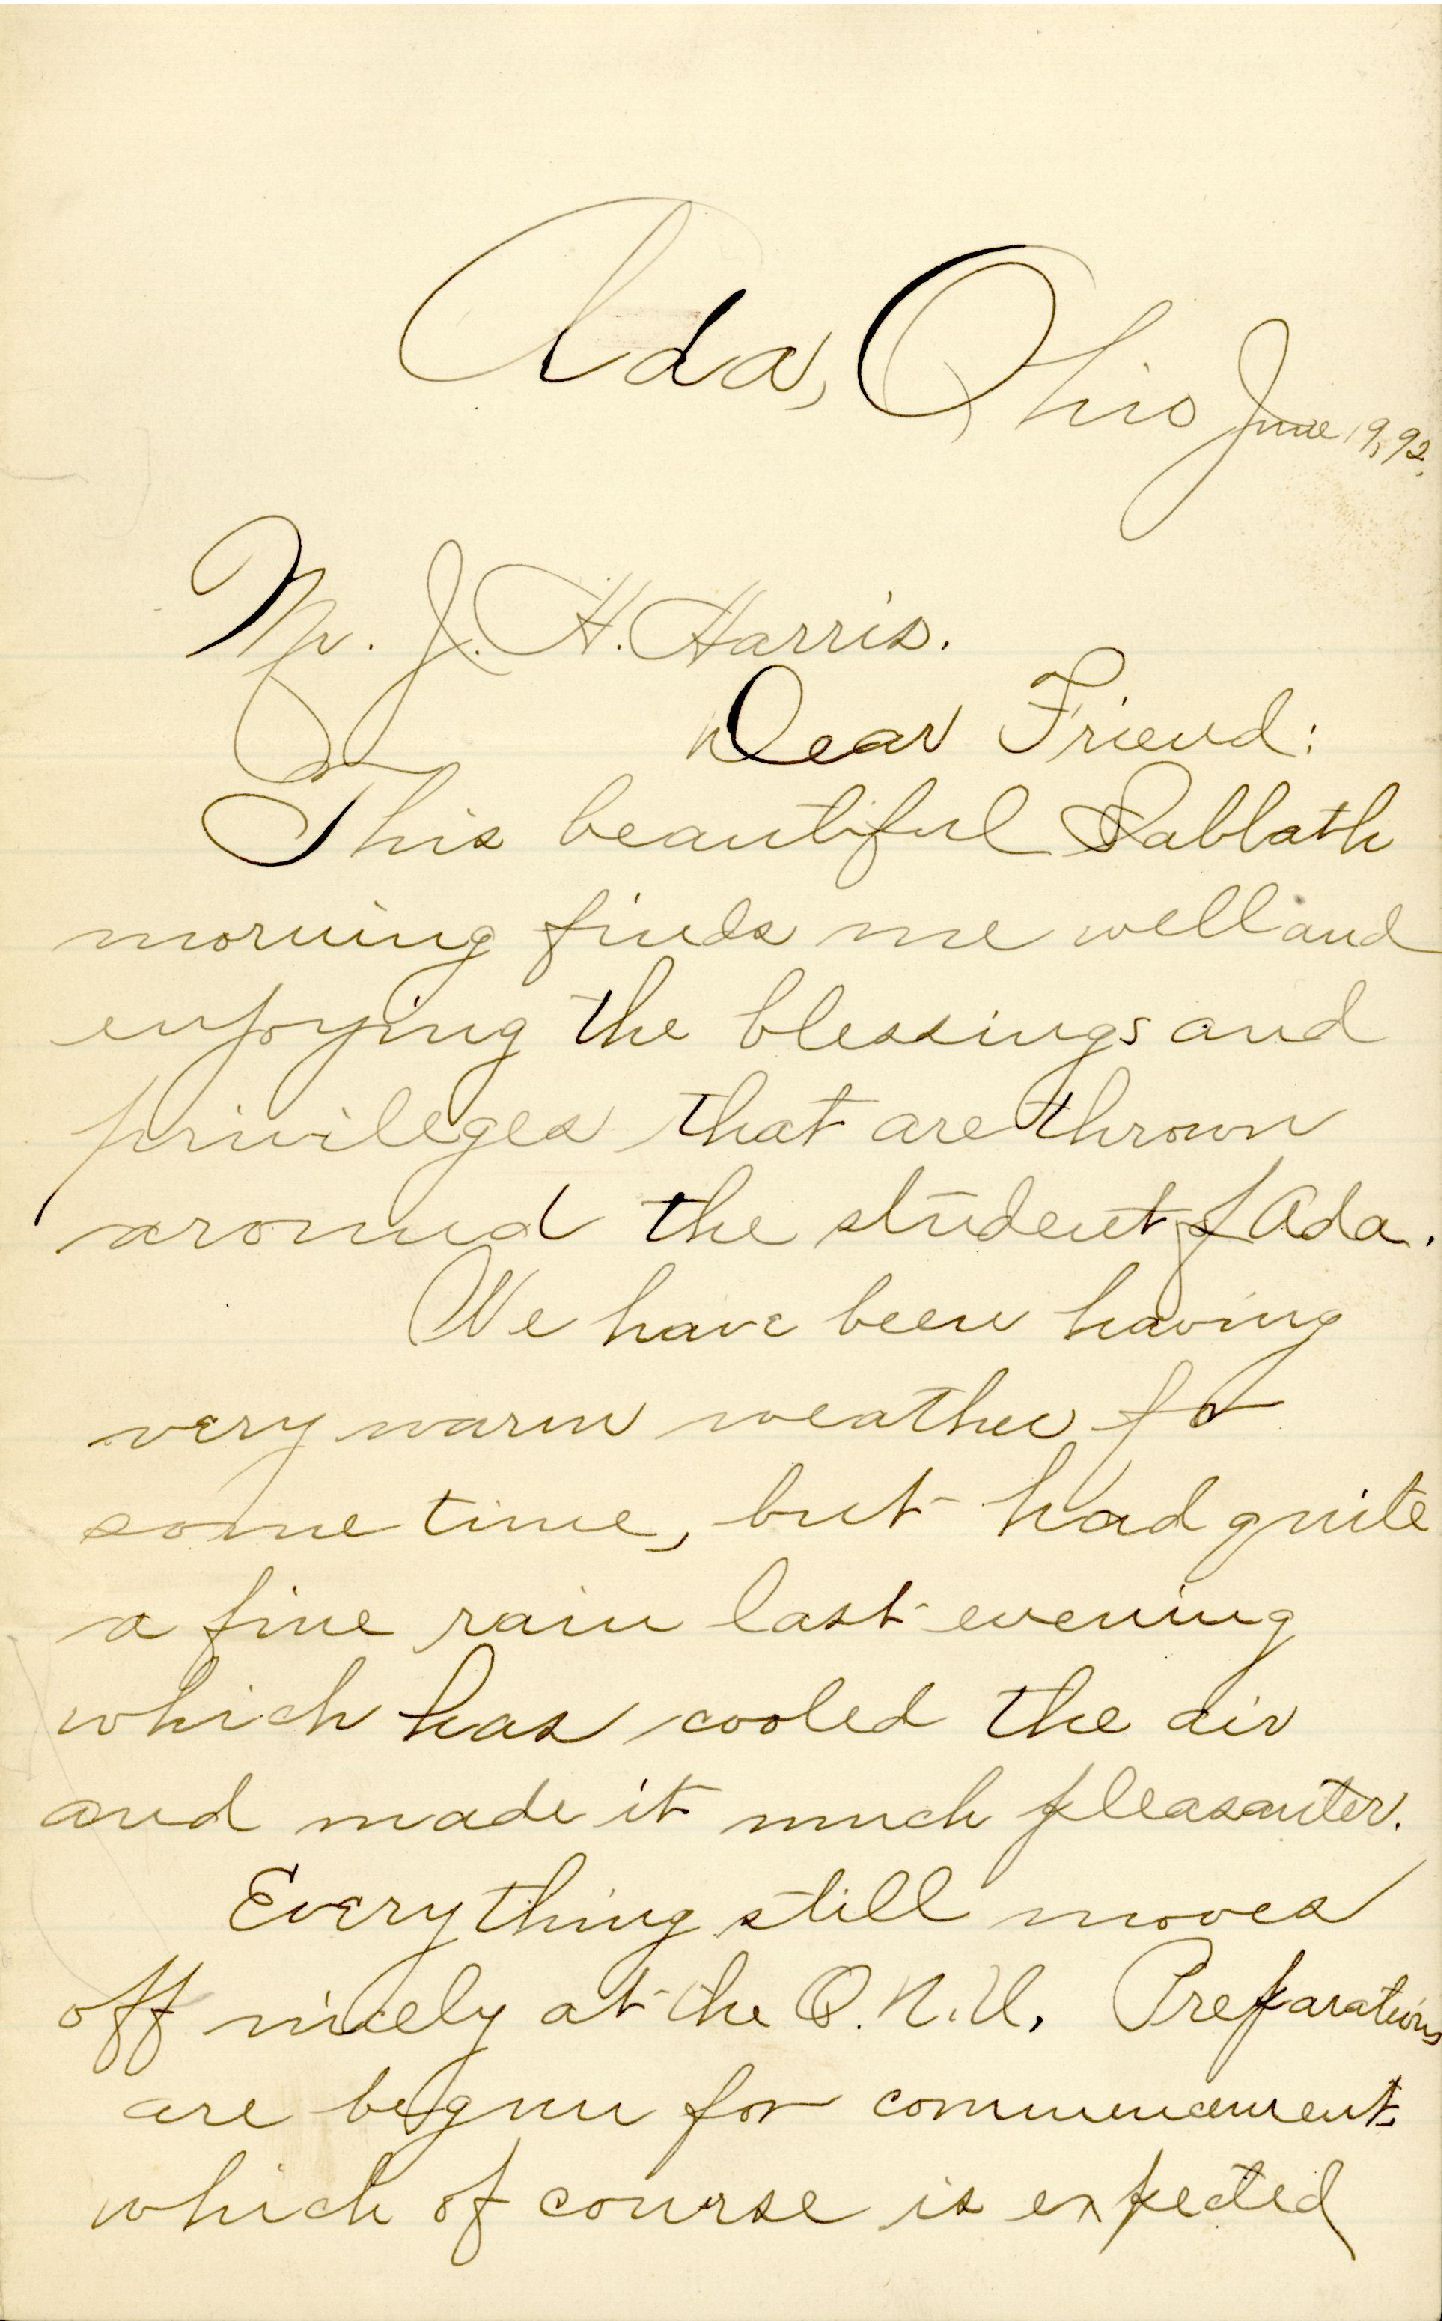 Ada, Ohio June 19, 92.
Mr. J. H. Harris.
Dear Friend:
This beautiful Sabbath
morning finds me well and
enjoying the blessings and
privileges that are thrown
around the student of Ada.
We have been having
very warm weather for
some time, but had quite
a fine rain last evening
which has cooled the air
and made it much pleasanter.
Everything still moves
off nicely at the O. N. U. Preparations
are begun for commencement
which of course is expected